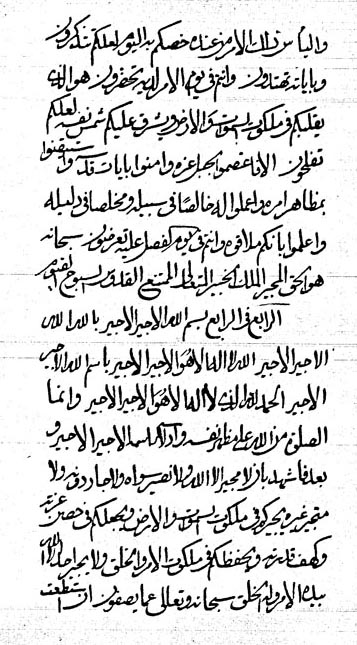 والبأس ذلك الامر من عنده خصكم به اليوم لعلكم تذكرون
وباياته تهتدون وانتم في يوم الامر اليه تحضرون هو الذي
يقلبكم في ملكوت السموات والارض ويشرق عليكم شمس نفسه لعلكم
تفلحون الا فاعتصموا بحبل عزه وامنوا بايات قدسه واستيقنوا
بمظاهر امره واعملوا له خالصا في سبيله ومخلصا في دليله
واعلموا بانكم ملاقوه وانتم في يوم كفصل عليه تعرضون سبحانه
هو الحق المجير الملك الخبير المتعال الممتنع القدوس السبوح القيوم
الرابع في الرابع بسم الله الاجير الاجير بالله الله
الاجير الاجير الله لا اله الا هو الاجير الاجير باسم الله الاجير
الاجير الحمد لله الذي لا اله الا هو الاجير الاجير وانما
الصلوة من الله على مظهر نفسه واداله اسم الاجير الاجير و
بعد فاشهد بان لا مجير الا الله ولا نصير سواه ولا جار دونه ولا
متجير غيره يجيركم في ملكوت السموات والارض ويجعلكم في حصن عزته
وكهف قدرته ويحفظكم في ملكوت الامر والخلق ولا يجير احد الا الله
بيده الامر والخلق سبحانه وتعالى عما يصفون ان استطعت